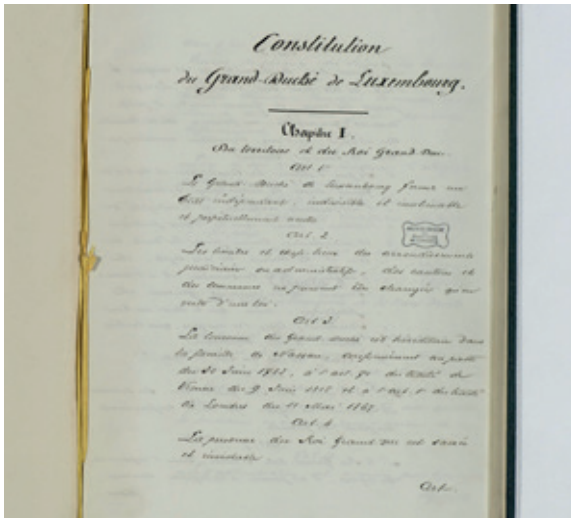 Constitution
du Grand-Duché de Luxembourg.
Chapitre I.
Du territoire et du Roi Grand-Duc.
Art. 1er
Le Grand-Duché de Luxembourg forme un
État indépendant, indivisible et inaliénable
et perpétuellement neutre.
Art. 2
Les limites et chefs-lieux des arrondissements
judiciaires ou administratifs, des cantons et
des communes ne peuvent être changés qu'en
vertu d'une loi.
Art. 3
La couronne du Grand-Duché est héréditaire dans
la famille de Nassau, conformément au pacte
du 30 Juin 1783, à l'art. 71 du traité de
Vienne du 9 Juin 1815 et à l'art. 1er du traité
de Londres du 11 Mai 1867.
Art. 4
La personne du Roi Grand-Duc est sacrée
et inviolable
Art.